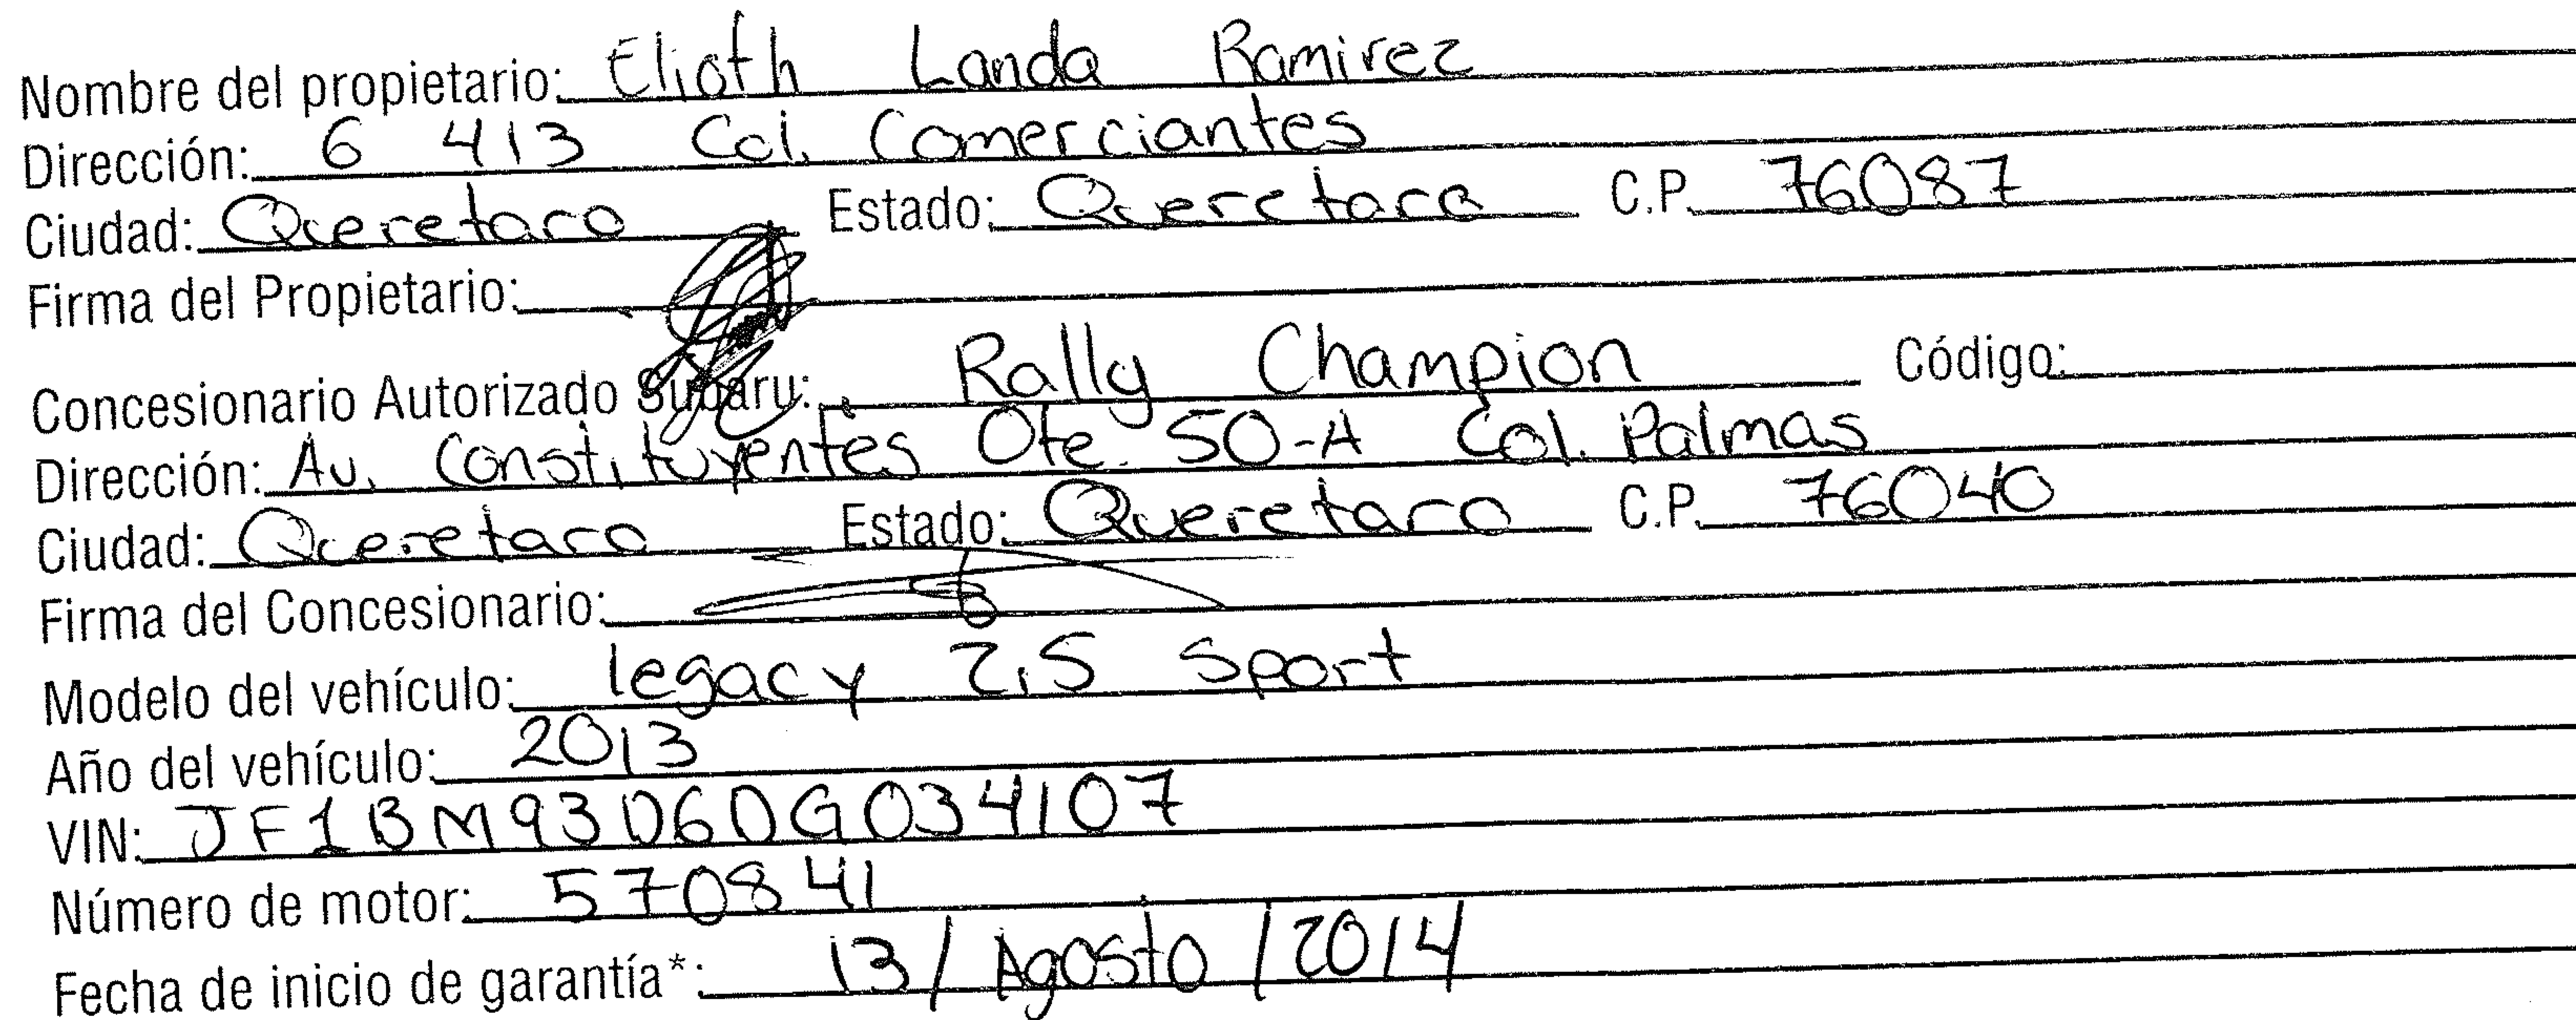 Nombre del propietario: Elioth Landa Ramirez
Dirección: 6 413 Col. Comerciantes
Ciudad: Queretaro Estado: Queretaro C.P. 76087
Firma del Propietario:
Concesionario Autorizado Subaru: Rally Champion Código:
Dirección: Av. Constituyentes Ote. 50-A Col. Palmas
Ciudad: Queretaro Estado: Queretaro C.P. 76040
Firma del Concesionario:
Modelo del vehículo: legacy 2.5 Sport
Año del vehículo: 2013
VIN: JF1BM93D6DG034107
Número de motor: 570841
Fecha de inicio de garantía*: 13/Agosto/2014